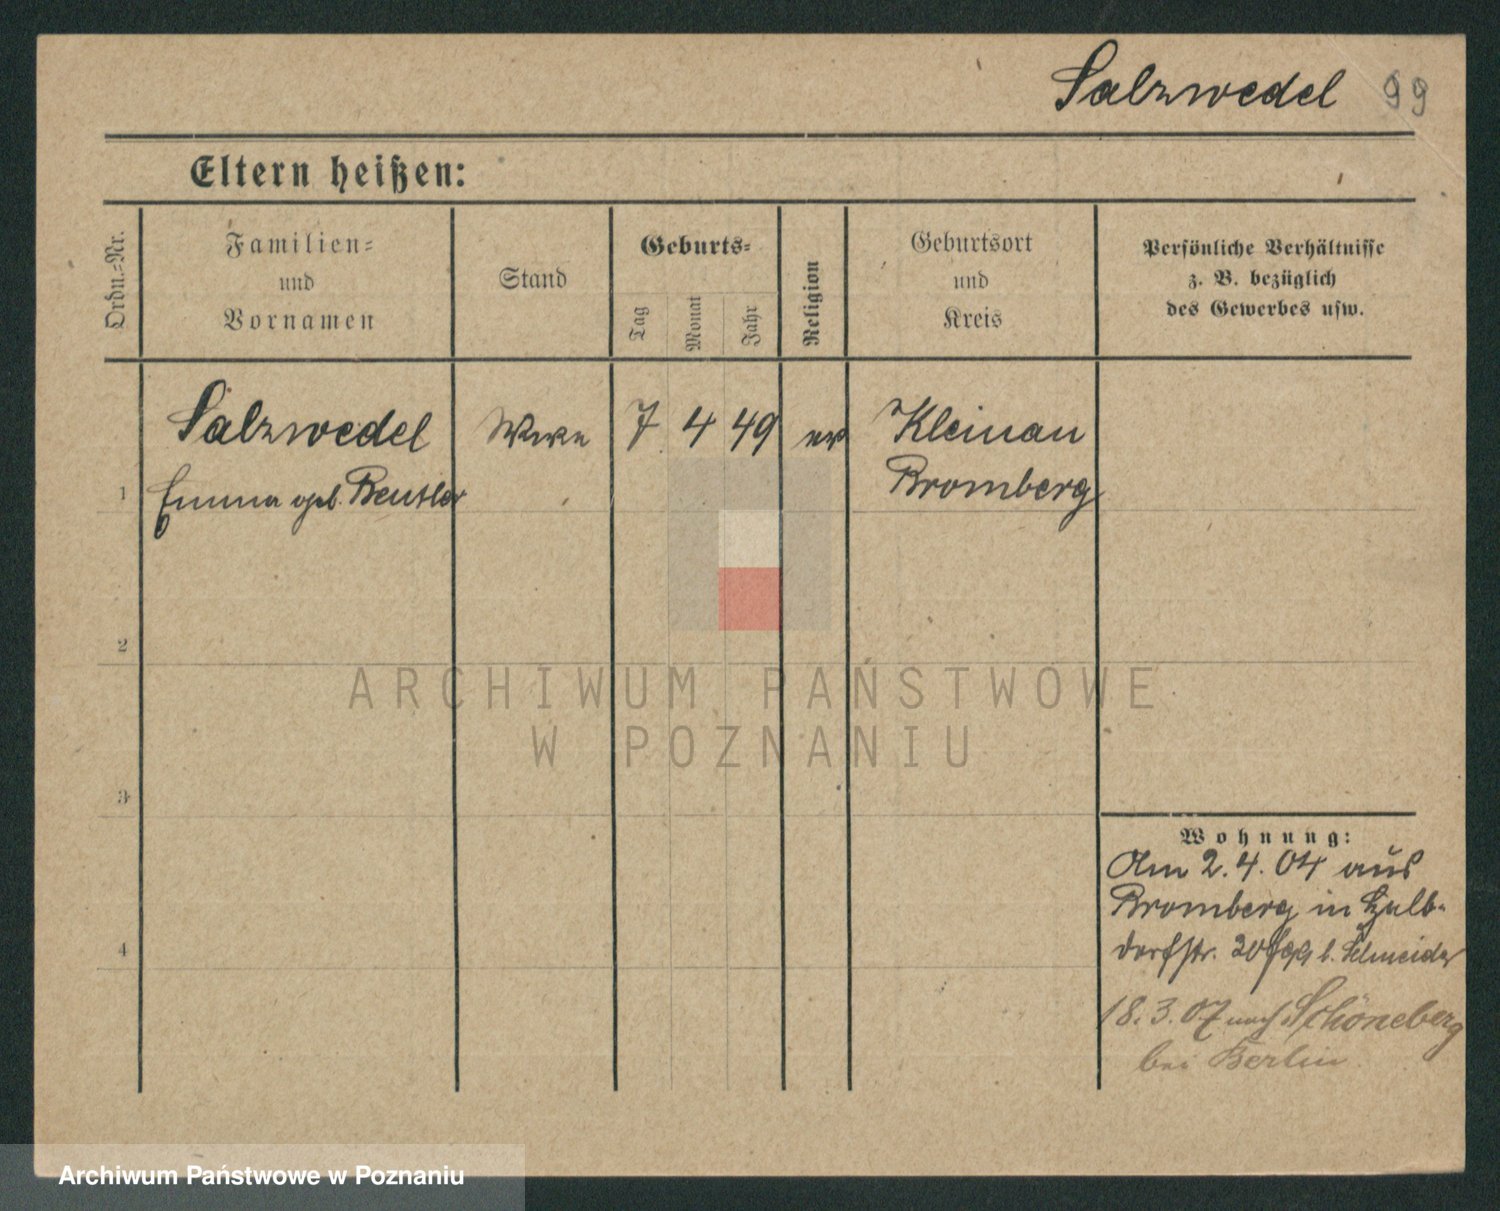 Salzwedel 99
Eltern heißen:
Ordn.=Nr.
Familien=
und
Vornamen
Stand
Geburts=
Tag
Monat
Jahr
Religion
Geburtsort
und
Kreis
Persönliche Verhältnisse
z. B. bezüglich
des Gewerbes usw.
Salzwedel Wwe 7 4 49 ev Kleinau
1 Emma geb. Beutler Bromberg
2
ARCHIWUM PAŃSTWOWE
W POZNANIU
3
Wohnung:
Am 2.4.04 aus
Bromberg in Held-
dorfstr. 20 b. Schneider
4
18.3.07 nach Schöneberg
bei Berlin
Archiwum Państwowe w Poznaniu